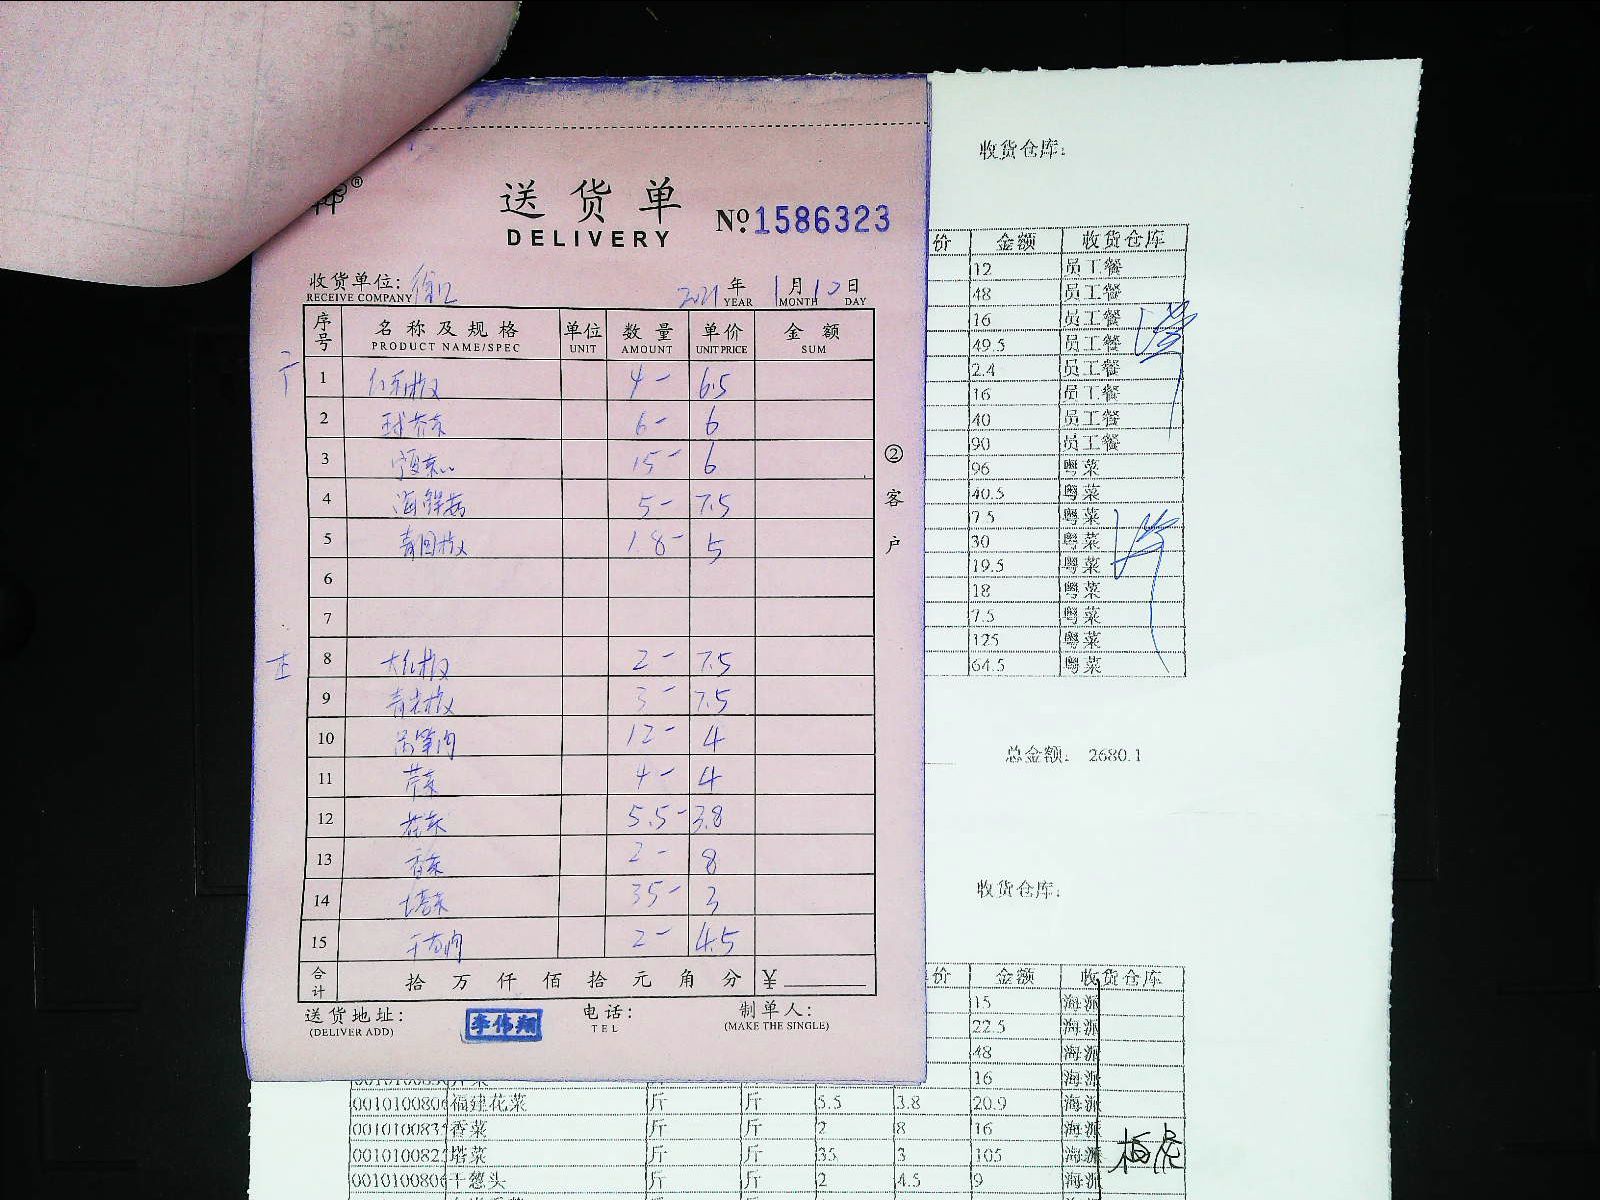 送货单
DELIVERY
№ 1586323
收货单位:
RECEIVE COMPANY
2021 年 1 月 12 日
YEAR MONTH DAY
序号 名称及规格 单位 数量 单价 金额
PRODUCT NAME/SPEC UNIT AMOUNT UNIT PRICE SUM
1 4- 6.5
2 球芥菜 6- 6
3 15- 6
4 海鲜菇 5- 7.5
5 青圆椒 18- 5
6
7
8 大红椒 2- 7.5
9 青尖椒 3- 7.5
10 12- 4
11 芹菜 4- 4
12 花菜 5.5- 3.8
13 香菜 2- 8
14 塔菜 35- 3
15 2- 4.5
合计 拾 万 仟 佰 拾 元 角 分 ¥
送货地址:
(DELIVER ADD)
李伟翔
电话:
TEL
制单人:
(MAKE THE SINGLE)
②客户
收货仓库:
价 金额 收货仓库
12 员工餐
48 员工餐
16 员工餐
49.5 员工餐
2.4 员工餐
16 员工餐
40 员工餐
90 员工餐
96 粤菜
40.5 粤菜
7.5 粤菜
30 粤菜
19.5 粤菜
18 粤菜
7.5 粤菜
125 粤菜
64.5 粤菜
总金额: 2680.1
收货仓库:
价 金额 收货仓库
15 海派
22.5 海派
48 海派
16 海派
0010100806 福建花菜 斤 斤 5.5 3.8 20.9 海派
001010083 香菜 斤 斤 2 8 16 海派
001010082 塔菜 斤 斤 35 3 105 海派
001010080 干葱头 斤 斤 2 4.5 9 海派